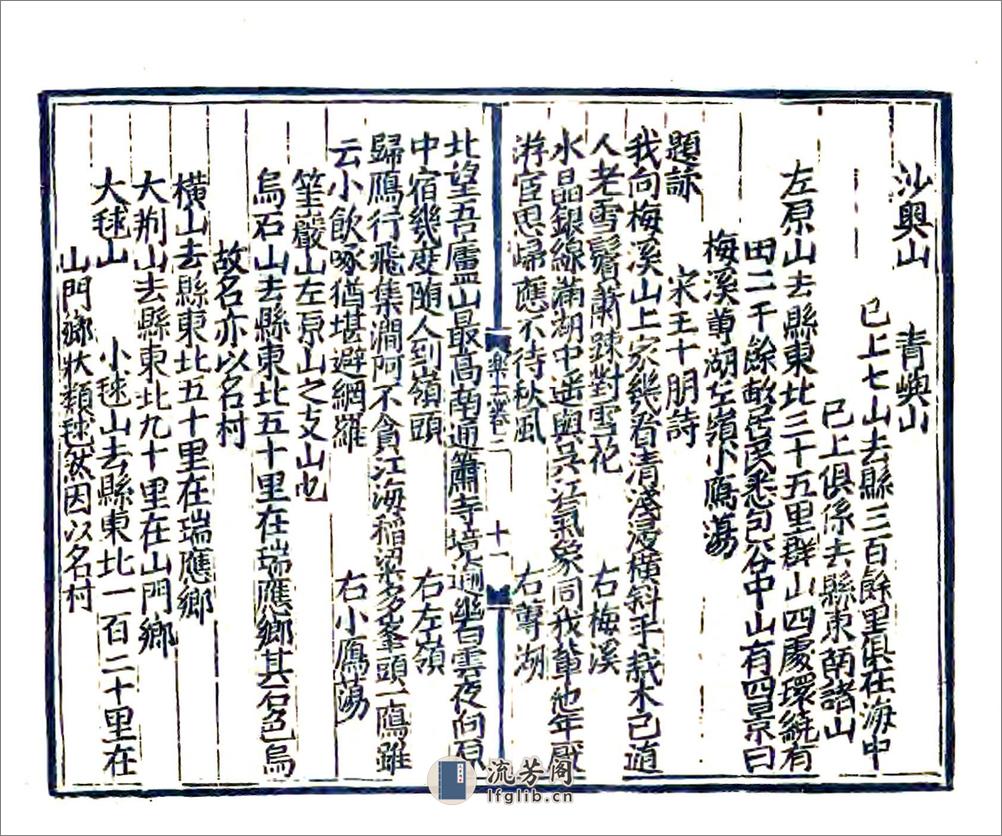 沙輿山　青嶼山
已上七山去縣三百餘里俱在海中
已上俱係去縣東南諸山
左原山去縣東北三十五里群山四處環繞有
田二千餘畝居民悉包谷中山有四景曰
梅溪蓴湖左嶺小鴈蕩
題詠　宋王十朋詩
我向梅溪山上家幾看清淺浸橫斜手栽木已適
人老雪鬢蕭踈對雪花　右梅溪
水晶銀線滿湖中遥與吳江氣象同我軰他年厭
游宦思歸應不待秋風　右蓴湖
北望吾廬山最高南通簫寺境逈幽白雲夜向原
中宿幾度随人到嶺頭　右左嶺
歸鴈行飛集澗阿不貪江海稻梁多峯頭一鴈雖
云小飲啄猶堪避網羅　右小鴈蕩
筀巖山左原山之支山也
烏石山去縣東北五十里在瑞應鄉其石色烏
故名亦以名村
橫山去縣東北五十里在瑞應鄉
大荆山去縣東北九十里在山門鄉
大毬山　小毬山去縣東北一百二十里在
山門鄉狀類毬然因以名村
樂志卷二　十一
流芳阁
lfglib.cn